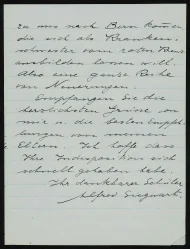 zu uns nach Bern kommen
die sich als Kranken-
schwester vom roten Kreuz
ausbilden lassen will.
Also eine ganze Reihe
von Neuerungen.
Empfangen Sie die
herzlichsten Grüsse von
mir u. die besten Empfeh-
lungen von meinen
Eltern. Ich hoffe dass
Ihre Indisposition sich
schnell gehoben habe.
Ihr dankbarer Schüler
Alfred Siegwart.